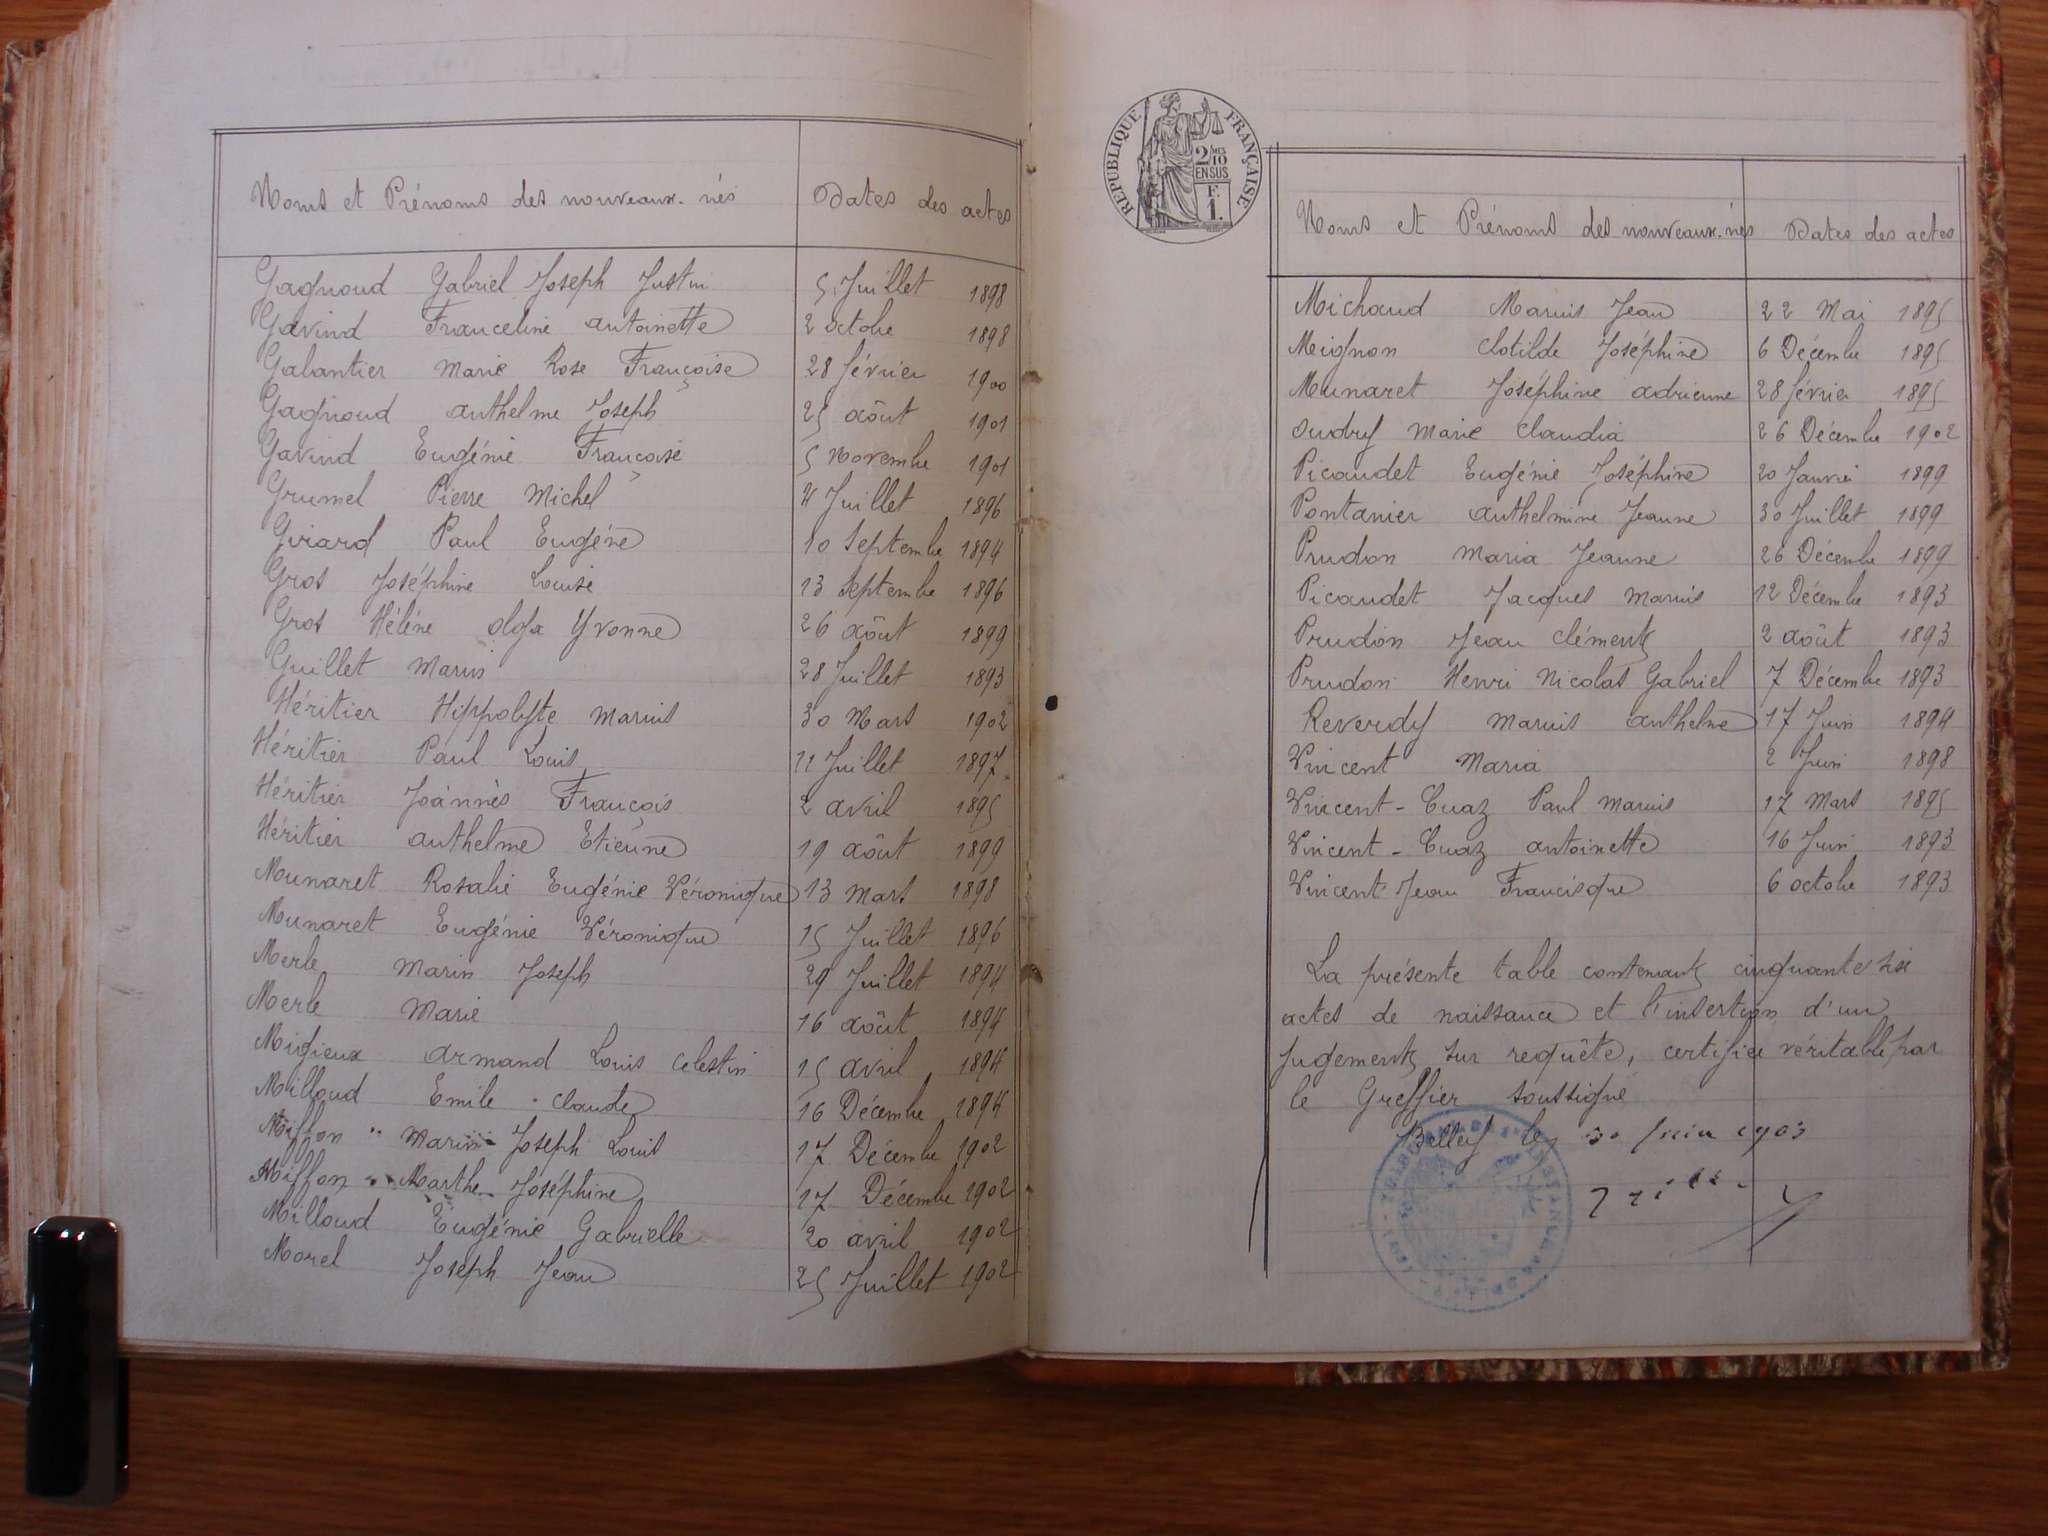 Noms et Prénoms des nouveaux-nés Dates des actes
Gagnoud Gabriel Joseph Justin 5 Juillet 1898
Gavind Franceline antoinette 2 octobre 1898
Galantier Marie Rose Françoise 28 février 1900
Gagnoud anthelme Joseph 25 aôut 1901
Gavind Eugénie Françoise 5 novembre 1901
Grumel Pierre Michel 4 Juillet 1896
Girard Paul Eugéne 10 Septembre 1894
Gros Joséphine Louise 13 Septembre 1896
Gros Héléne olga Yvonne 26 aôut 1899
Guillet Marius 28 Juillet 1893
Héritier Hippolyte Marius 30 Mars 1902
Héritier Paul Louis 11 Juillet 1897
Héritier Joánnès François 2 avril 1895
Héritier anthelme Etienne 19 aôut 1899
Munaret Rosalie Eugénie Véronique 13 Mars 1898
Munaret Eugénie Véronique 15 Juillet 1896
Merle Marin Joseph 29 Juillet 1894
Merle Marie 16 aôut 1894
Migieux armand Louis Celestin 15 avril 1894
Milloud Emile Claude 16 Décembre 1894
Miffon Marius Joseph Louis 17 Décembre 1902
Miffon Marthe Joséphine 17 Décembre 1902
Milloud Eugénie Gabrielle 20 avril 1902
Morel Joseph Jean 25 Juillet 1902
REPUBLIQUE FRANÇAISE
2/10 MES
EN SUS
F.
1.
Noms et Prénoms des nouveaux-nés Dates des actes
Michaud Marius Jean 22 Mai 1895
Meignon Clotilde Joséphine 6 Décembre 1895
Munaret Joséphine adrienne 28 février 1895
oudry Marie Claudia 26 Décembre 1902
Picaudet Eugénie Joséphine 20 Janvier 1899
Pontanier anthelmine Jeanne 30 Juillet 1899
Prudon Maria Jeanne 26 Décembre 1899
Picaudet Jacques Marius 12 Décembre 1893
Prudon Jean Clément 2 aôut 1893
Prudon Henri Nicolas Gabriel 7 Décembre 1893
Reverdy Marius anthelme 17 Juin 1894
Vincent Maria 2 Juin 1898
Vincent-Cuaz Paul Marius 17 Mars 1895
Vincent-Cuaz antoinette 16 Juin 1893
Vincent Jean Francisque 6 octobre 1893
La présente table contenant cinquante six
actes de naissance et l'insertion d'un
jugement sur requête, certifiée véritable par
le Greffier soussigné
Belley le 30 Juin 1903